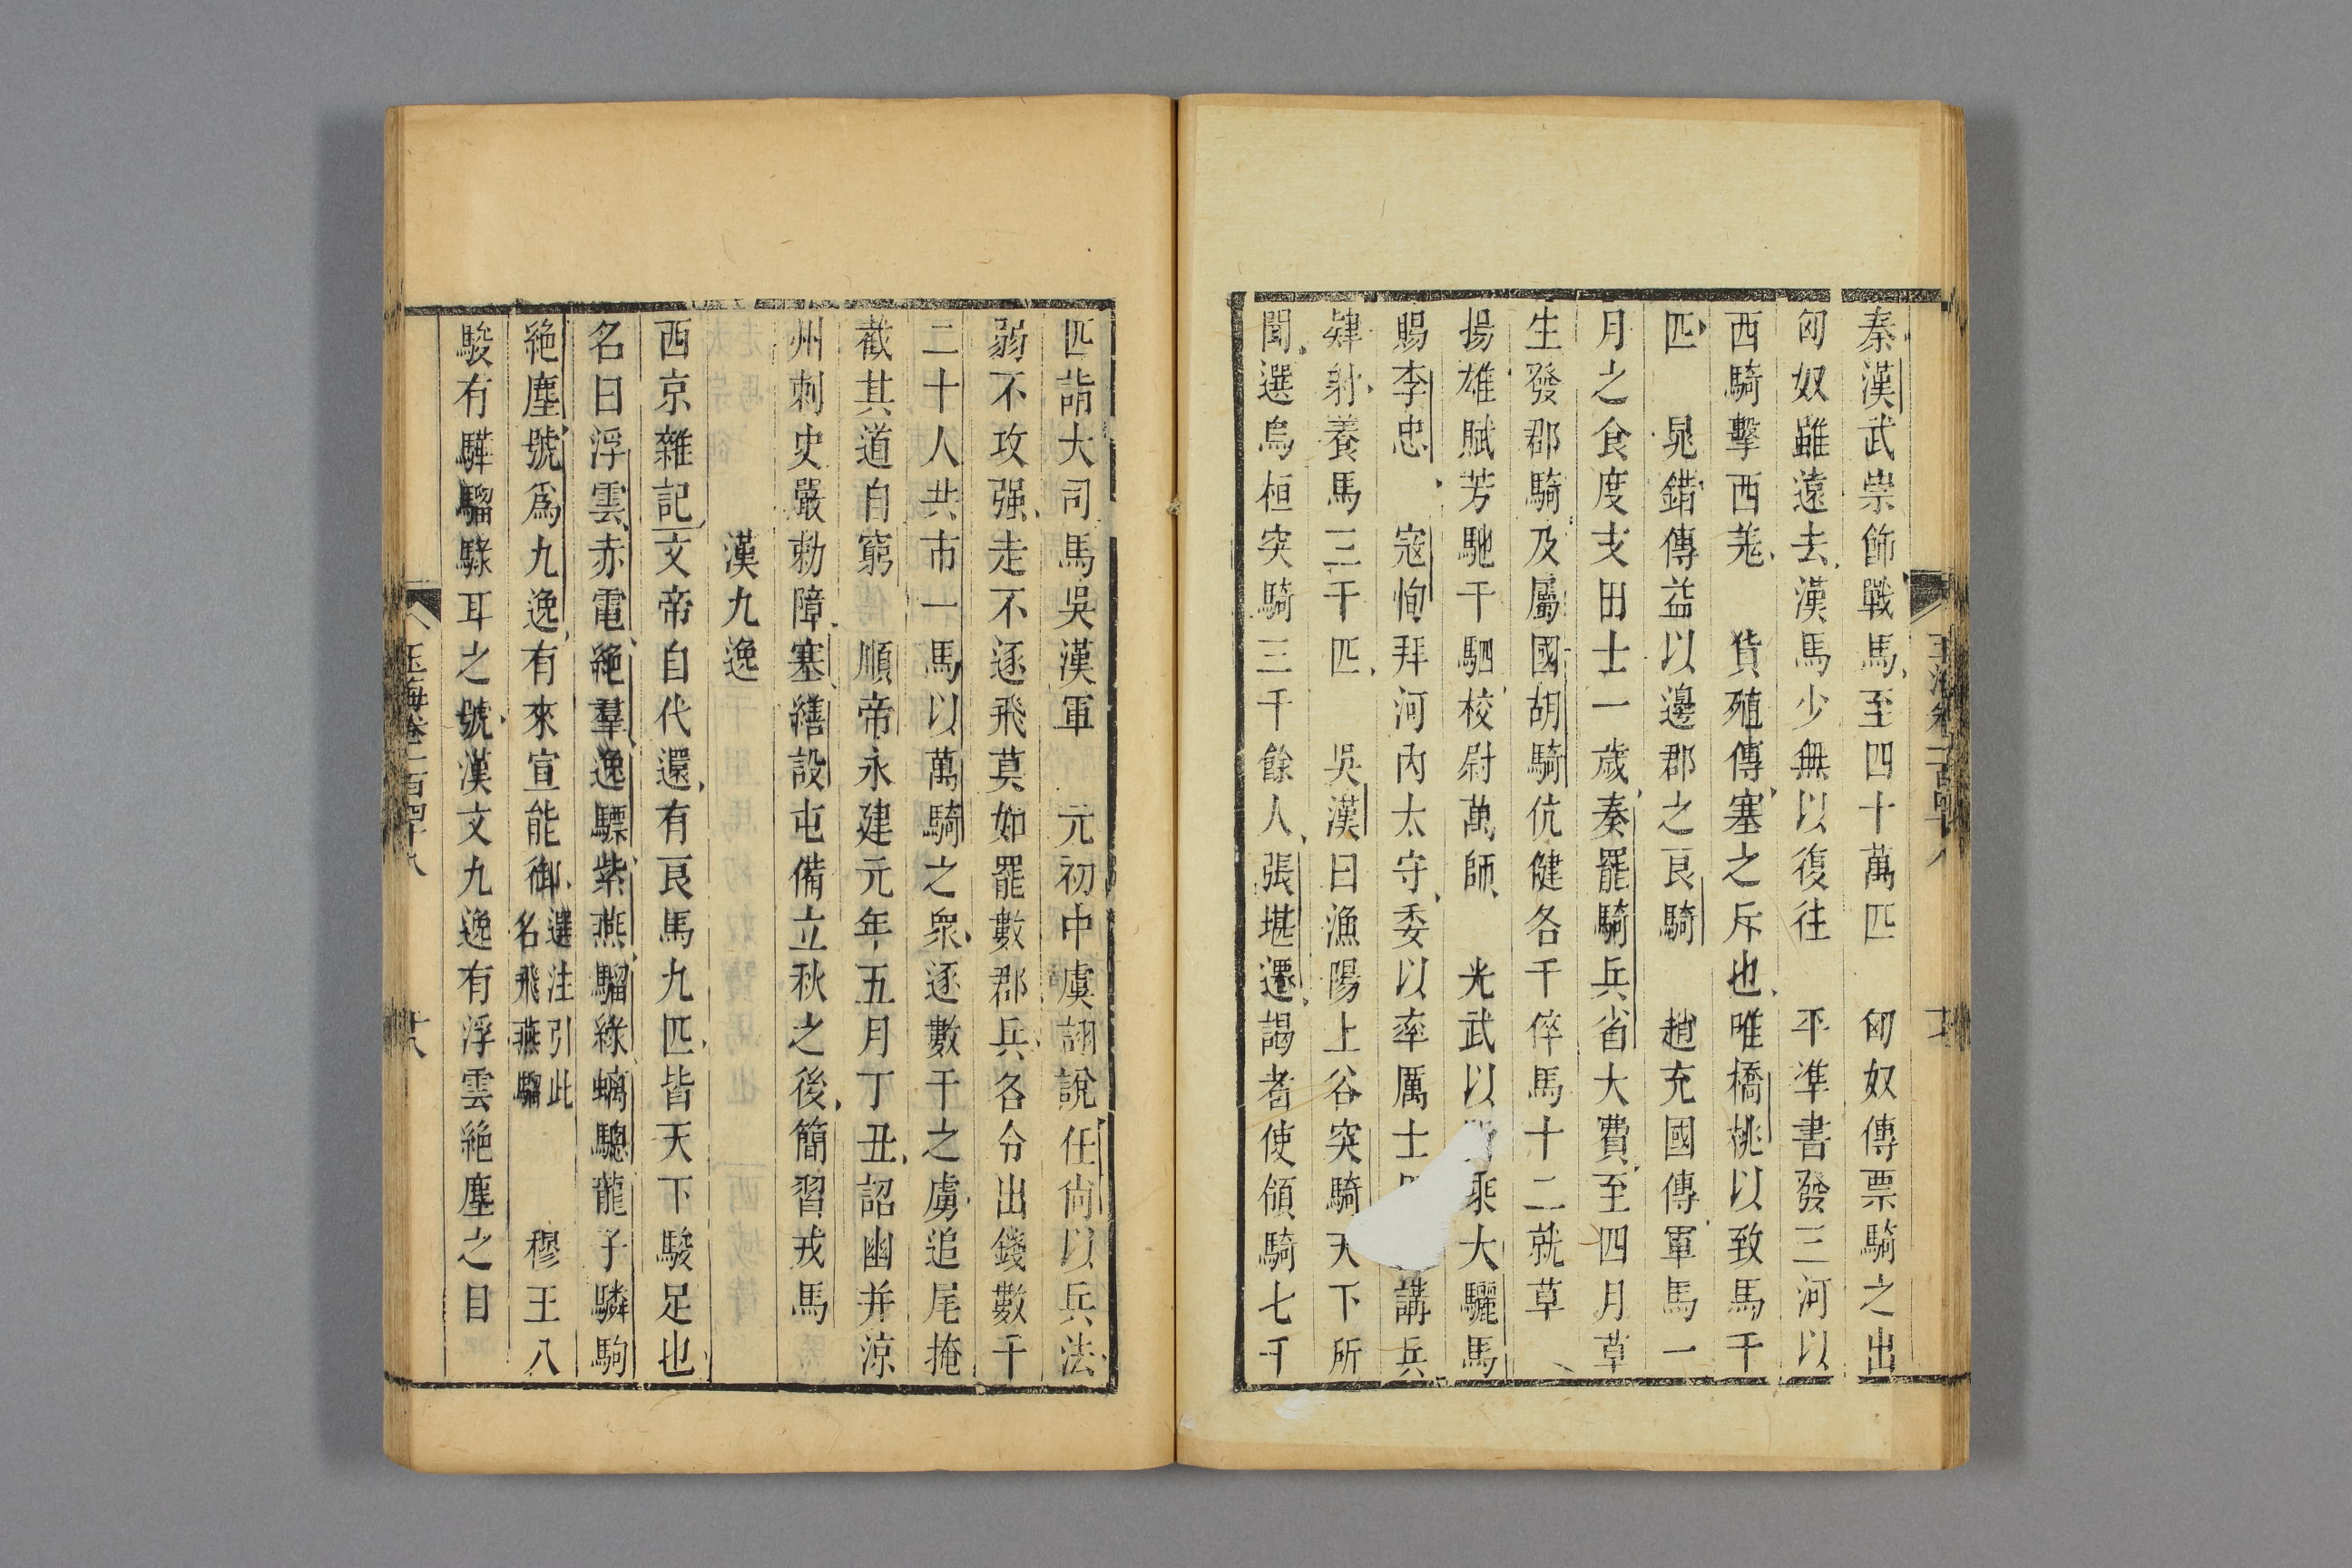 秦漢武崇飾戰馬至四十萬匹　匈奴傳票騎之出
匈奴雖遠去漢馬少無以復往　平準書發三河以
西騎擊西羌　貨殖傳塞之斥也唯橋桃以致馬千
匹　晁錯傳益以邊郡之良騎　趙充國傳軍馬一
月之食度支田士一歲奏罷騎兵省大費至四月草
生發郡騎及屬國胡騎伉健各千倅馬十二就草
揚雄賦芳馳千駟校尉萬師　光武以　乘大驪馬
賜李忠　寇恂拜河內太守委以率厲士　講兵
肄射養馬三千匹　吳漢曰漁陽上谷突騎天下所
聞選烏桓突騎三千餘人張堪遷謁者使領騎七千
匹詣大司馬吳漢軍　元初中虞詡說任尚以兵法
弱不攻强走不逐飛莫如罷數郡兵各分出錢數千
二十人共市一馬以萬騎之衆逐數千之虜追尾掩
截其道自窮　順帝永建元年五月丁丑詔幽并涼
州刺史嚴勅障塞繕設屯備立秋之後簡習戎馬
漢九逸
西京雜記文帝自代還有良馬九匹皆天下駿足也
名曰浮雲赤電絕羣逸驃紫燕騮綠螭驄龍子驎駒
絕塵號爲九逸有來宣能御選注引此名飛燕騮　穆王八
駿有驊騮騄耳之號漢文九逸有浮雲絕塵之目
玉海卷一百四十八
十八